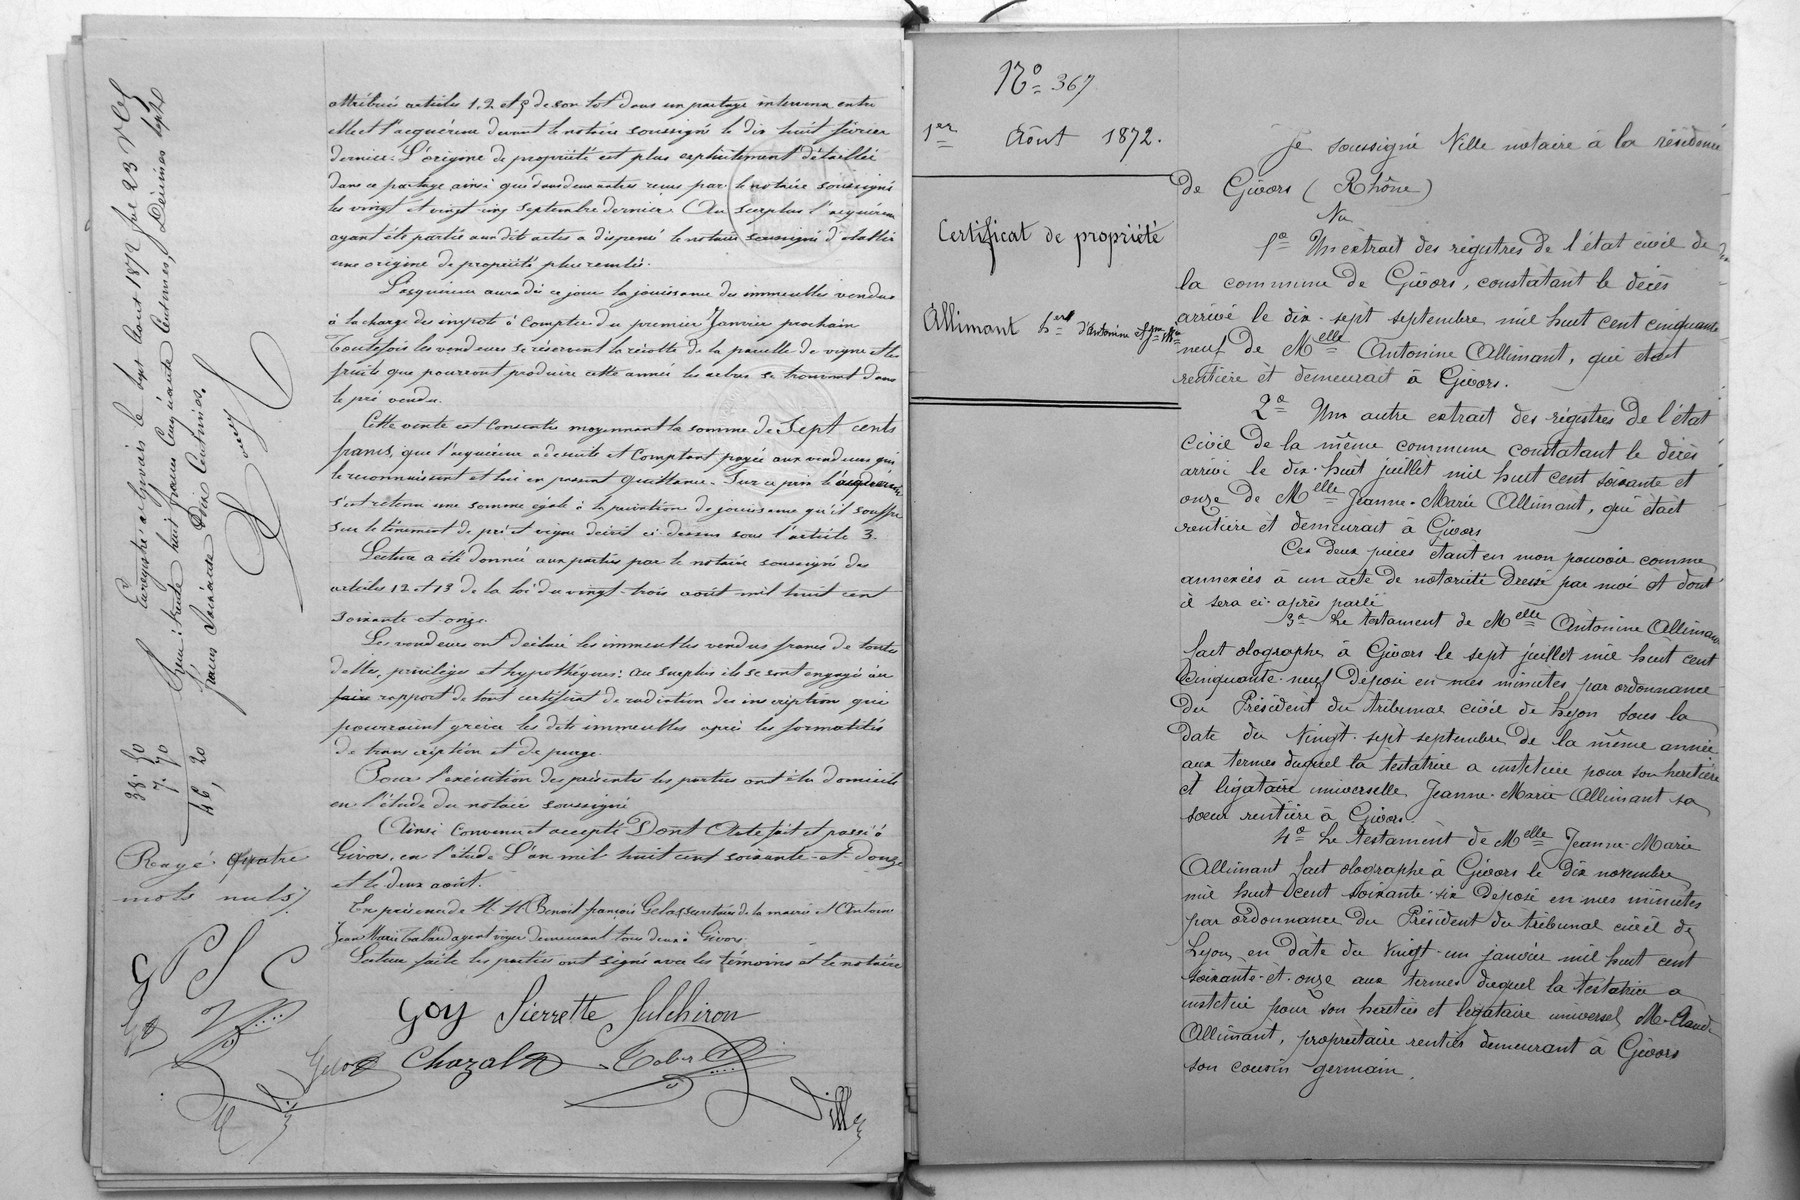 attribués articles 1, 2 et 5 de son lot dans un partage intervenu entre
elle et l'acquéreur devant le notaire soussigné le dix huit février
dernier. L'origine de propriété est plus explicitement détaillée
dans ce partage ainsi que dans deux autres reçus par le notaire soussigné
les vingt et vingt cinq septembre dernier. Au surplus l'acquéreur
ayant été partie aux dits actes a dispensé le notaire soussigné d'établir
une origine de propriété plus reculée.
L'acquéreur aura dès ce jour la jouissance des immeubles vendus
à la charge des impots à compter du premier Janvier prochain
Toutefois les vendeurs se réservent la récolte de la parcelle de vigne et les
fruits que pourront produire cette année les arbres se trouvant dans
le pré vendu.
Cette vente est consentie moyennant la somme de Sept cents
francs, que l'acquéreur a de suite et comptant payée aux vendeurs qui
le reconnaissent et lui en passent quittance. Sur ce prix l'acquéreur
s'est retenu une somme égale à la privation de jouissance qu'il souffre
sur le tènement de pré et vigne décrit ci-dessus sous l'article 3.
Lecture a été donnée aux parties par le notaire soussigné des
articles 12 et 13 de la loi du vingt-trois août mil huit cent
soixante et onze.
Les vendeurs ont déclaré les immeubles vendus francs de toutes
dettes, privilèges et hypothèques: au surplus ils se sont engagés à
faire rapport de tout certificat de radiation des inscription qui
pourraient grever les dits immeubles après les formalités
de transcription et de purge.
Pour l'exécution des présentes les parties ont élu domicile
en l'étude du notaire soussigné
Ainsi convenu et accepté Dont Acte fait et passé à
Givors, en l'étude L'an mil huit cent soixante et douze
et le deux août.
En présence de M. M. Benoit françois Gelas secrétaire de la mairie et Antoine
Jean Marie Tabard agent voyer demeurant tous deux à Givors.
Lecture faite les parties ont signé avec les témoins et le notaire
Goy Pierrette Sulchiron
Chazal
Ville
Enregistré à Givors le Août 1872
Reçu: trente huit francs Cinquante Centimes, Décimes sept
francs Soixante Dix Centimes.
38. 50
7. 70
46, 20
Rayé quatre
mots nuls
G P S C
No 367
1er Août 1872.
Certificat de propriété
Allimant hers d'Antonine et Jne Mie
Je soussigné Ville notaire à la résidence
de Givors (Rhône)
Vu
1o Un extrait des registres de l'état civil de
la commune de Givors, constatant le décès
arrivé le dix-sept septembre mil huit cent cinquante
neuf de Melle Antonine Allimant, qui était
rentière et demeurait à Givors.
2o Un autre extrait des registres de l'état
civil de la même commune constatant le décès
arrivé le dix-huit juillet mil huit cent soixante et
onze de Melle Jeanne-Marie Allimant, qui était
rentière et demeurait à Givors
Ces deux pièces étant en mon pouvoir comme
annexées à un acte de notoriété dressé par moi et dont
il sera ci-après parlé
3o Le testament de Melle Antonine Allimant
fait olographe à Givors le sept juillet mil huit cent
Cinquante-neuf déposé en mes minutes par ordonnance
du Président du tribunal civil de Lyon sous la
date du vingt-sept septembre de la même année
aux termes duquel la testatrice a institué pour son héritière
et légataire universelle, Jeanne-Marie Allimant sa
soeur rentière à Givors
4o Le testament de Melle Jeanne-Marie
Allimant fait olographe à Givors le dix novembre
mil huit cent soixante-six déposé en mes minutes
par ordonnance du Président du tribunal civil de
Lyon, en date du vingt-un janvier mil huit cent
soixante-et-onze aux termes duquel la testatrice a
institué pour son héritier et légataire universel M. Claude
Allimant, propriétaire rentier demeurant à Givors
son cousin germain.